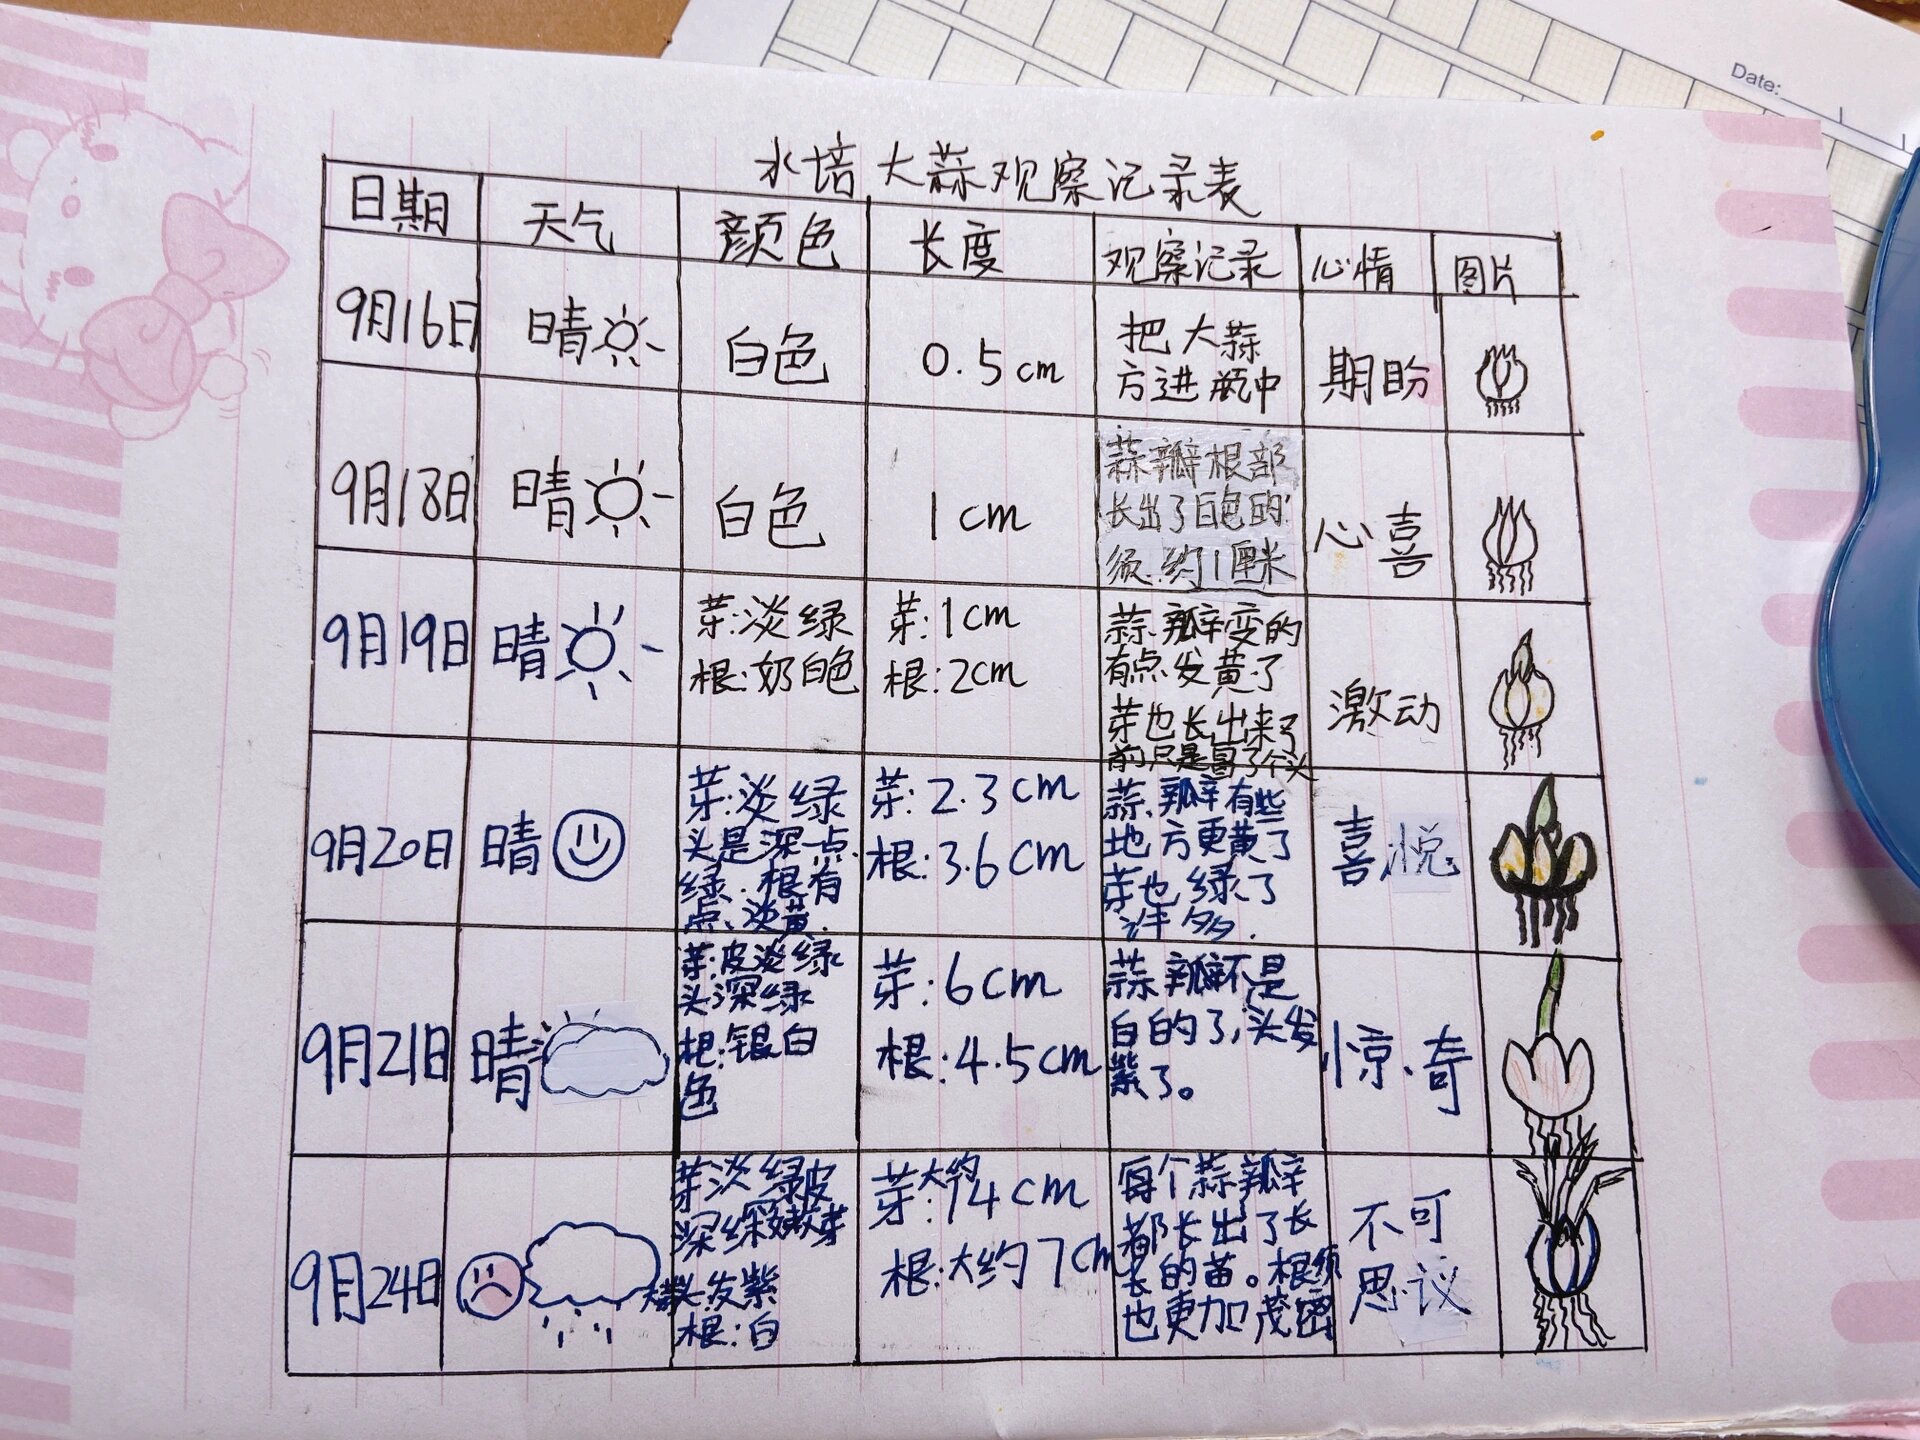 Date:
水培大蒜观察记录表
日期 天气 颜色 长度 观察记录 心情 图片
9月16日 晴 白色 0.5cm 把大蒜 期盼
方进瓶中
9月18日 晴 白色 1cm 蒜瓣根部 心喜
长出了白色的
须.约1厘米
9月19日 晴 芽:淡绿 芽:1cm 蒜瓣变的 激动
根:奶白色 根:2cm 有点发黄了
芽也长出来了
前只是冒了个头
9月20日 晴 芽:淡绿 芽:2.3cm 蒜瓣有些 喜悦
头是深一点 根:3.6cm 地方更黄了
绿.根有 芽也绿了
点淡黄. 许多.
9月21日 晴 芽:皮淡绿 芽:6cm 蒜瓣不是 惊奇
头深绿 根:4.5cm 白的了,头发
根:银白 紫了。
色
9月24日 芽淡绿皮 芽:大约14cm 每个蒜瓣 不可
深绿嫩芽 根:大约7cm 都长出了长 思议
头发紫 长的苗。根须
根:白 也更加茂密